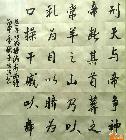 刑天與帝爭神
帝斷其首葬之
常羊之山乃以
乳為目以臍為
口操干戚以舞